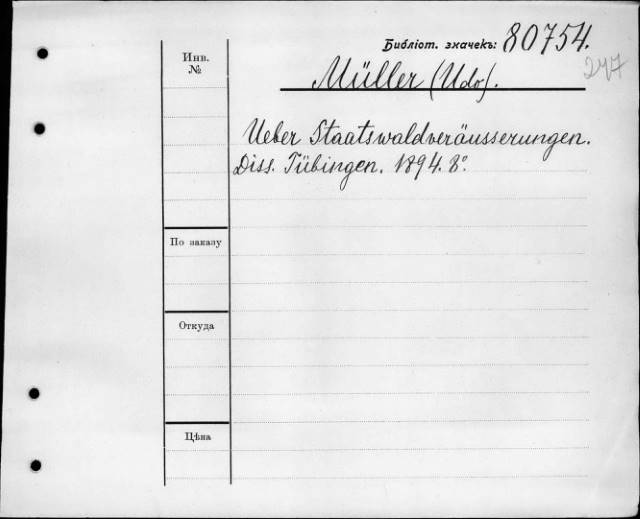 Библіот. значекъ: 80754.
277
Инв.
№
Müller (Udo).
Ueber Staatswaldveräusserungen.
Diss. Tübingen. 1894. 8°.
По заказу
Откуда
Цѣна